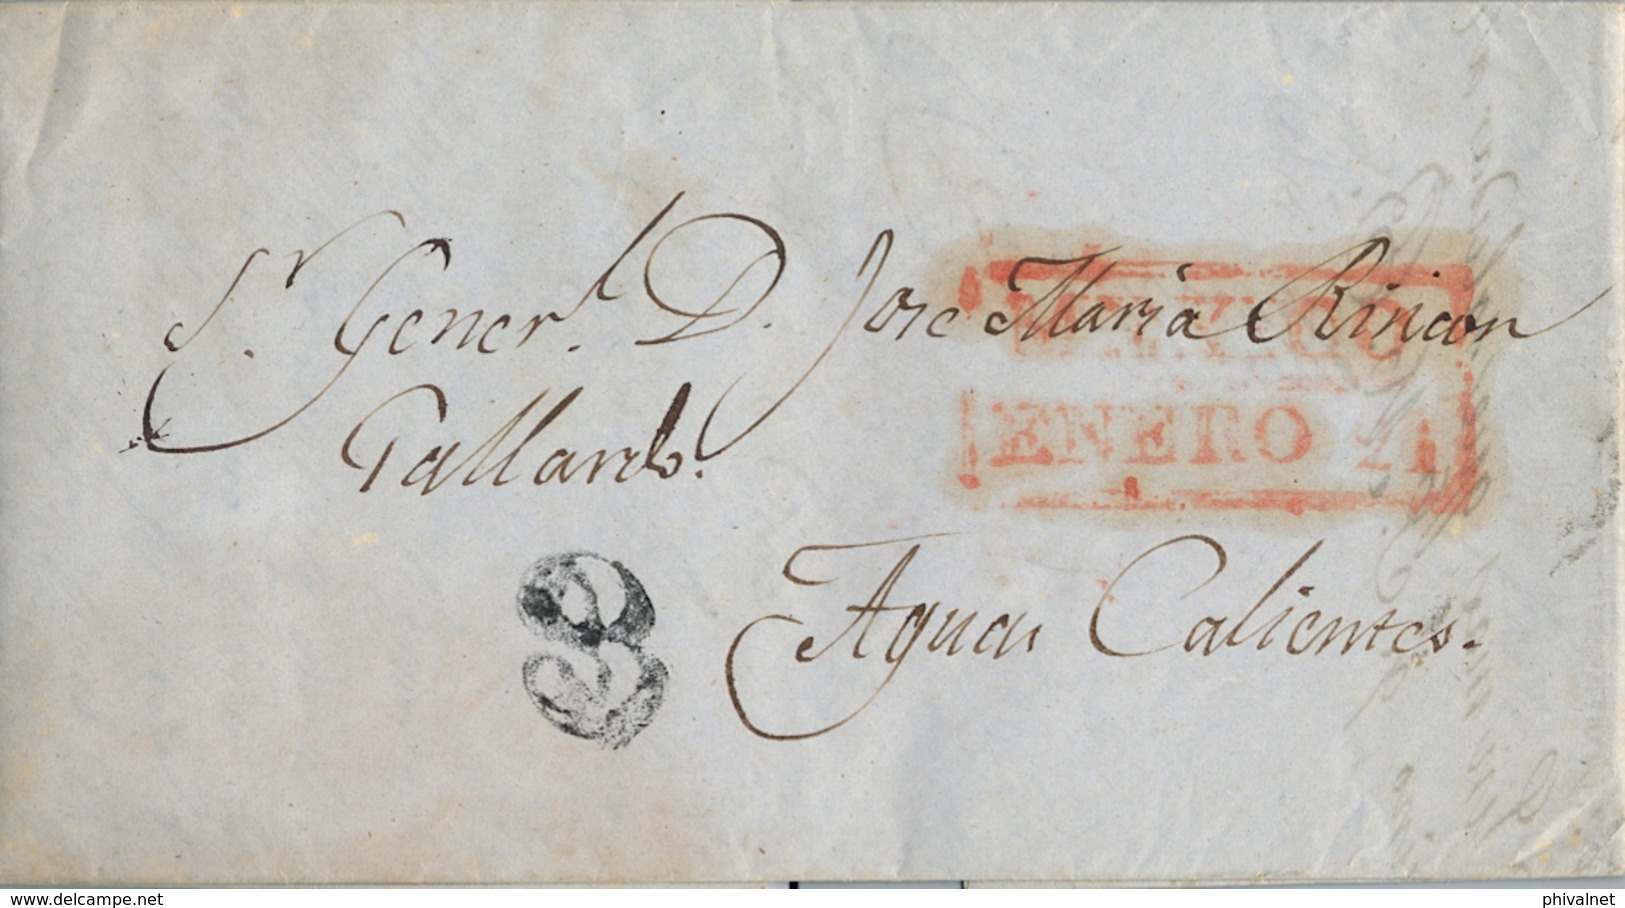 Sr. Generl. D. Jose Maria Rincon
Gallardo.
MEXICO
ENERO 21
8
Aguas Calientes.
delcampe.net
phivalnet